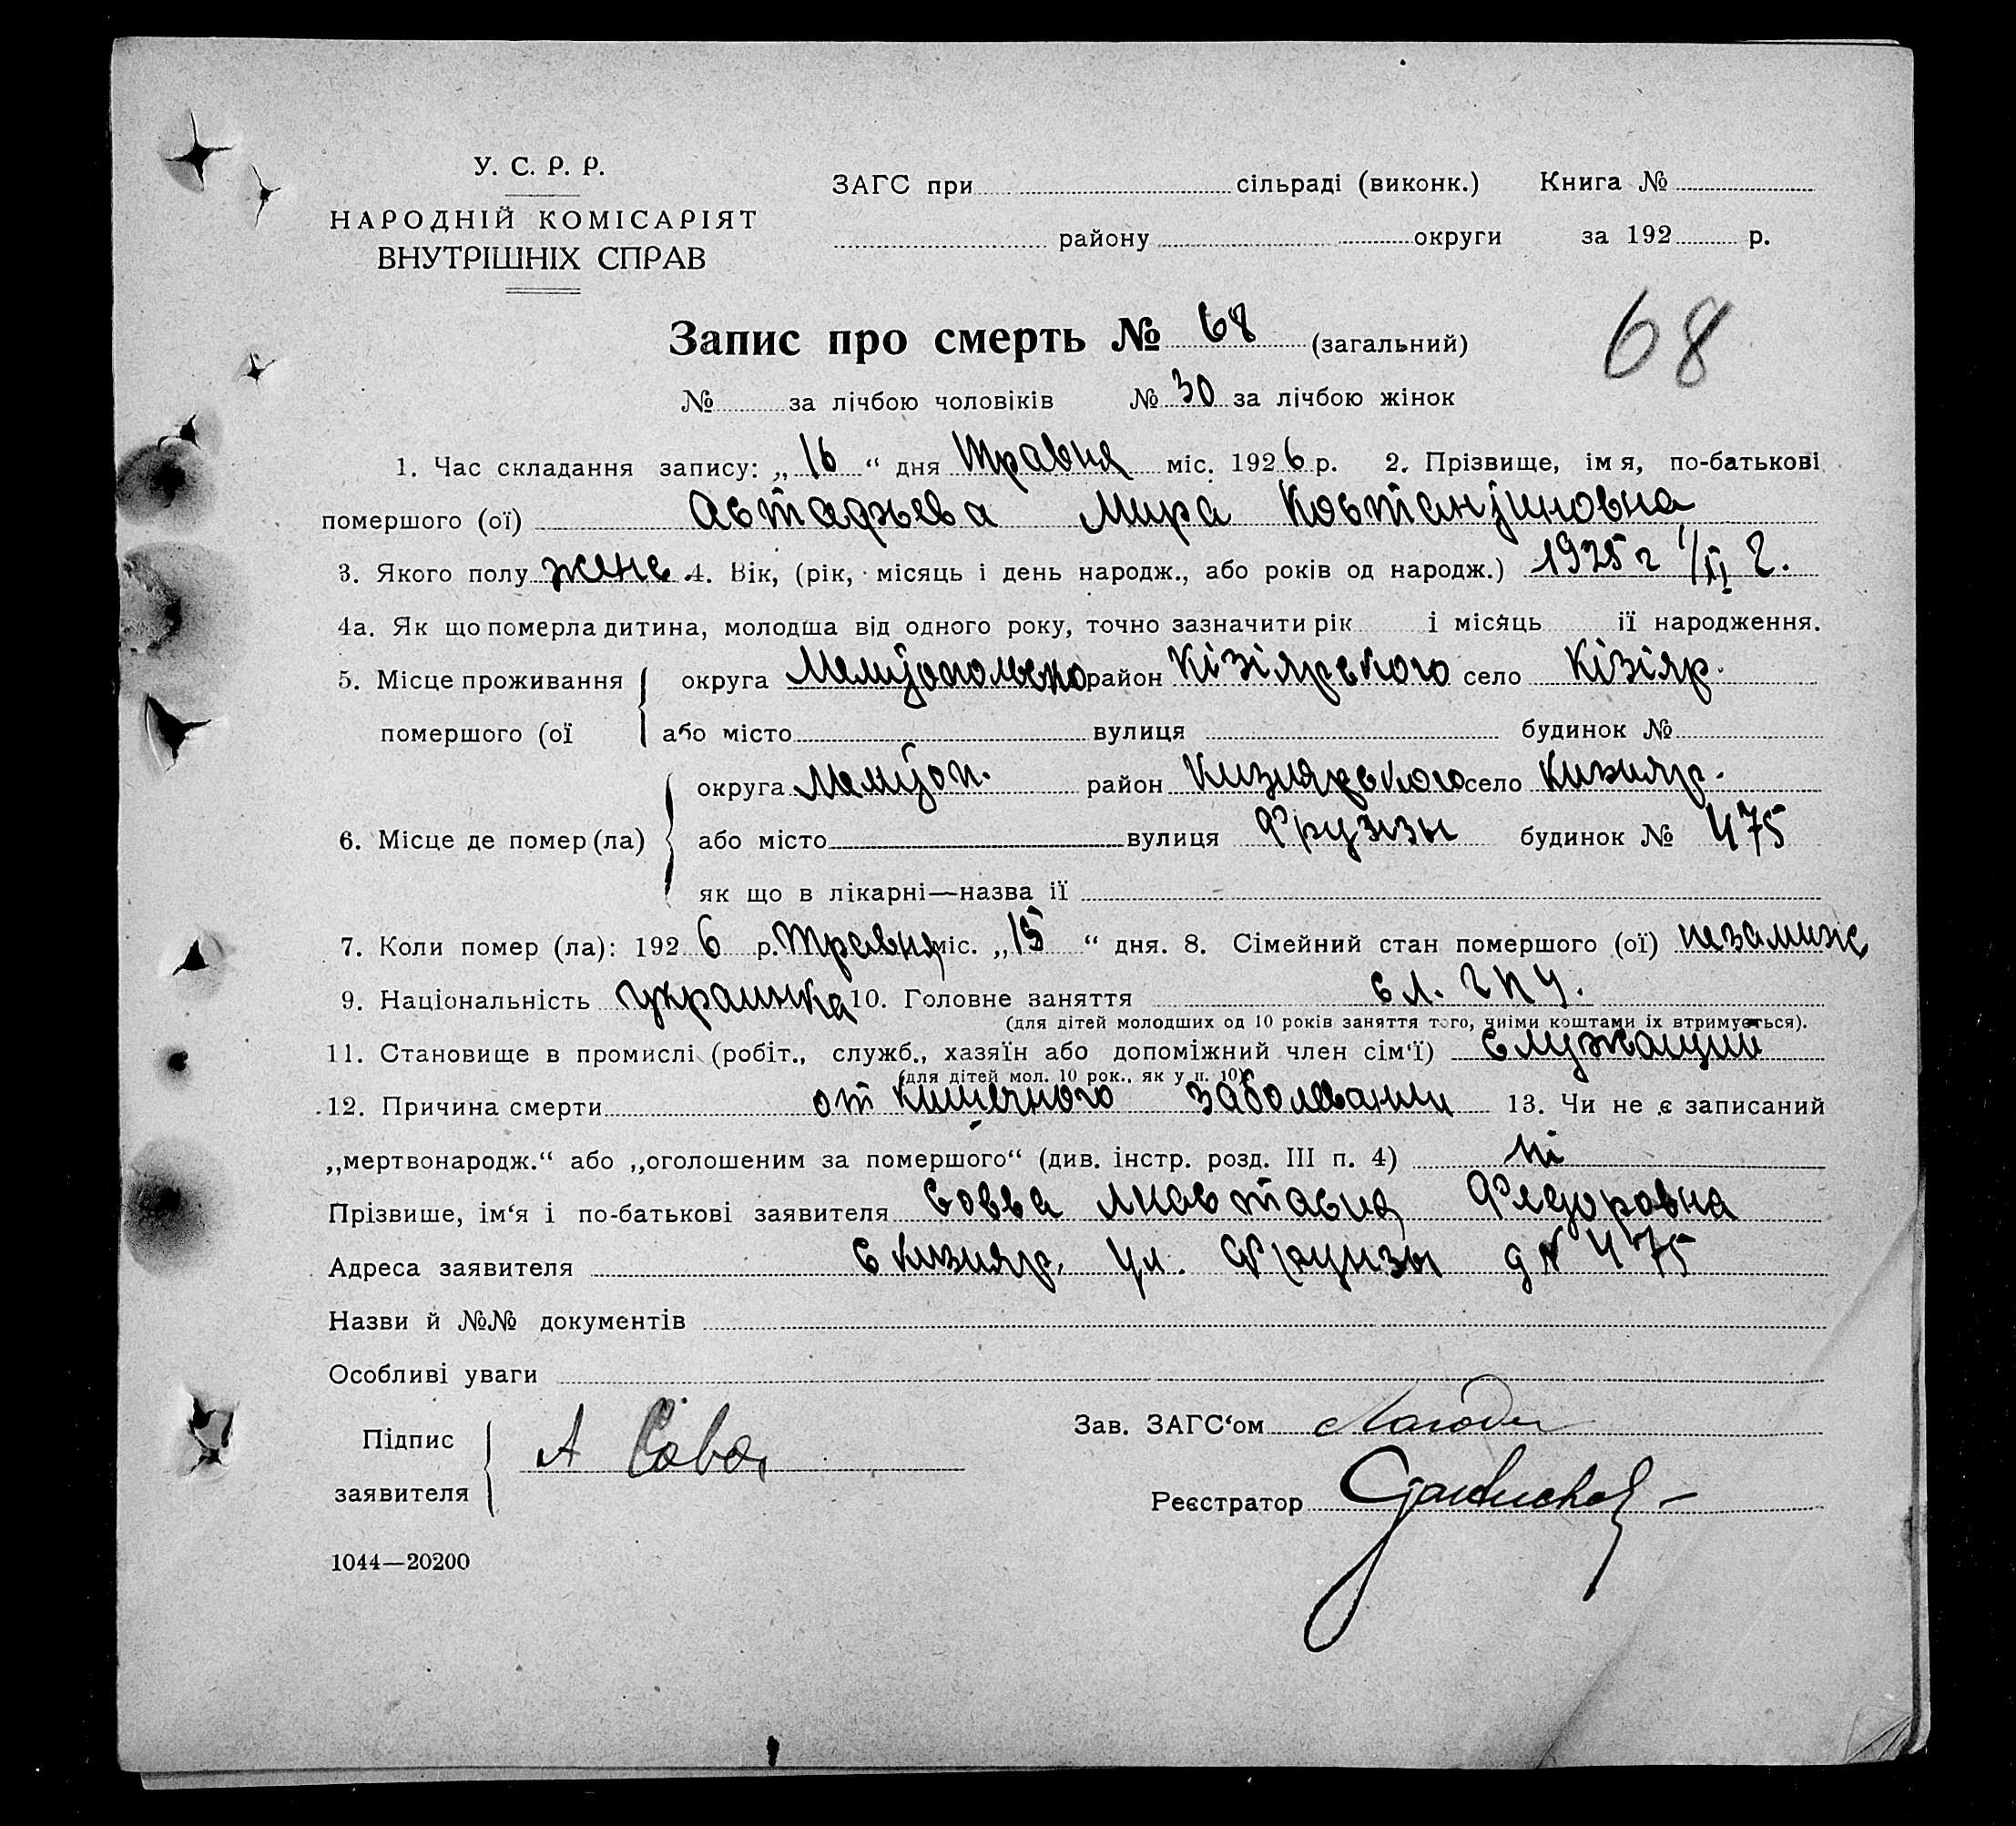 У. С. Р. Р.
НАРОДНІЙ КОМІСАРІЯТ
ВНУТРІШНІХ СПРАВ
ЗАГС при сільраді (виконк.) Книга №
району округи за 192 р.
Запис про смерть № 68 (загальний)
68
№ за лічбою чоловіків № 30 за лічбою жінок
1. Час складання запису: „16“ дня Травня міс. 1926 р. 2. Прізвище, імя, по-батькові
помершого (ої) Астафьева Мира Костантиновна
3. Якого полу жене 4. Вік, (рік, місяць і день народж., або років од народж.) 1925 г 1/
4а. Як що померла дитина, молодша від одного року, точно зазначити рік і місяць ії народження.
5. Місце проживання помершого (ої
округа Мелитопольско район Кізіярського село Кізіяр.
або місто вулиця будинок №
6. Місце де помер (ла)
округа Мелитоп. район Кизиярського село Кизияр.
або місто вулиця Фрунзы будинок № 475
як що в лікарні—назва ії
7. Коли помер (ла): 1926 р. Травня міс. „15“ дня. 8. Сімейний стан помершого (ої) незамиж
9. Національність украинка 10. Головне заняття сл. гпу.
(для дітей молодших од 10 років заняття того, чиїми коштами їх втримується).
11. Становище в промислі (робіт., служб., хазяїн або допоміжний член сім‘ї) служащий
(для дітей мол. 10 рок., як у п. 10)
12. Причина смерти от кишечного заболевании 13. Чи не є записаний
„мертвонародж.“ або „оголошеним за помершого“ (див. інстр. розд. III п. 4) ні
Прізвище, ім‘я і по-батькові заявителя Совва Анастасия Федоровна
Адреса заявителя с Кизияр. ул. Фрунзы д № 475
Назви й №№ документів
Особливі уваги
Підпис заявителя А Сова
Зав. ЗАГС‘ом
Реєстратор
1044—20200